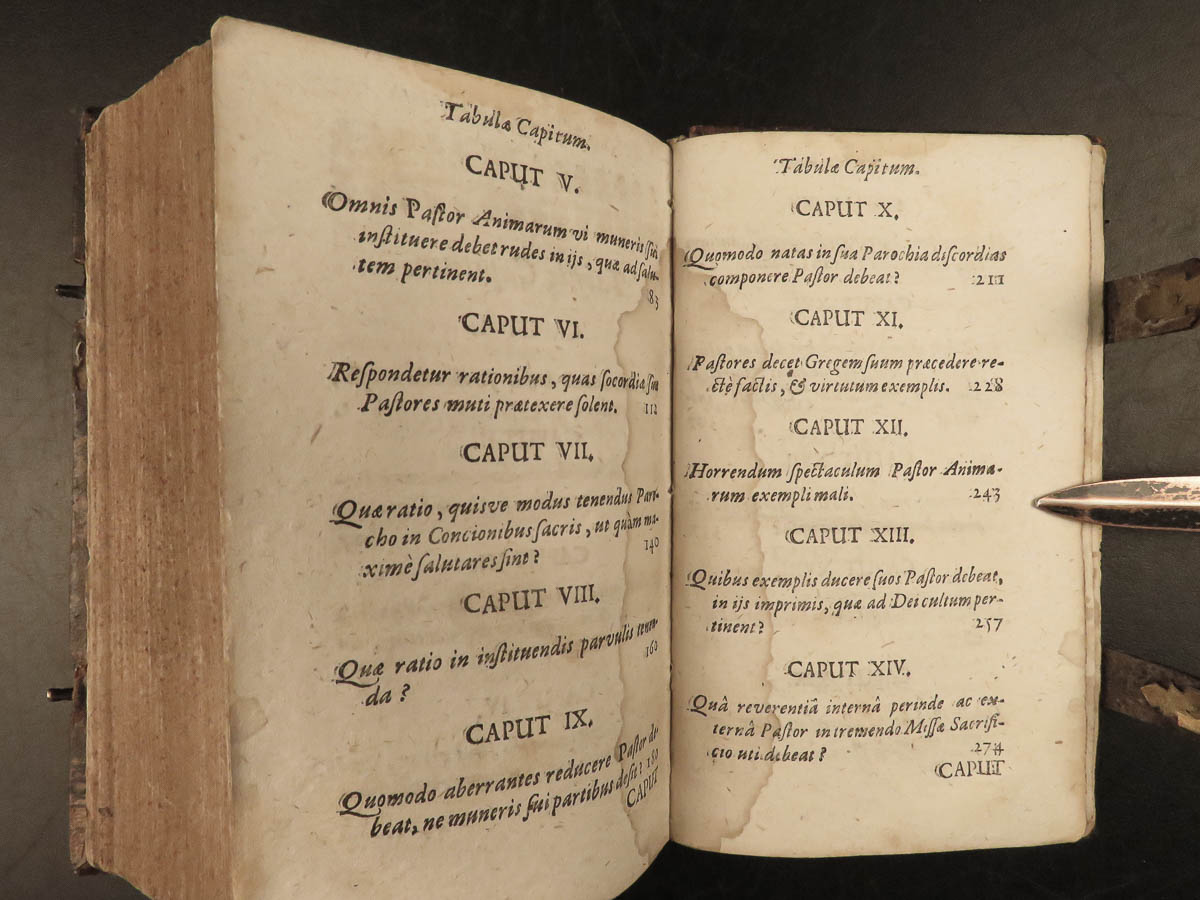 Tabulæ Capitum.
CAPUT V.
Omnis Paſtor Animarum vi muneris ſui
inſtituere debet rudes in ijs, quæ ad ſalu-
tem pertinent.
83
CAPUT VI.
Reſpondetur rationibus, quas ſocordiæ ſuæ
Paſtores muti prætexere ſolent. 112
CAPUT VII.
Quæ ratio, quisve modus tenendus Paro-
cho in Concionibus ſacris, ut quàm ma-
ximè ſalutares ſint? 140
CAPUT VIII.
Quæ ratio in inſtituendis parvulis tenen-
da? 160
CAPUT IX.
Quomodo aberrantes reducere Paſtor de-
beat, ne muneris ſui partibus deſit? 180
CAPUT
Tabulæ Capitum.
CAPUT X.
Quomodo natas in ſua Parochia diſcordias
componere Paſtor debeat? 211
CAPUT XI.
Paſtores decet Gregem ſuum præcedere re-
ctè factis, & virtutum exemplis. 228
CAPUT XII.
Horrendum ſpectaculum Paſtor Anima-
rum exempli mali. 243
CAPUT XIII.
Quibus exemplis ducere ſuos Paſtor debeat,
in ijs imprimis, quæ ad Dei cultum per-
tinent? 257
CAPUT XIV.
Quâ reverentiâ internâ perinde ac ex-
ternâ Paſtor in tremendo Miſſæ Sacrifi-
cio uti debeat? 274
CAPUT